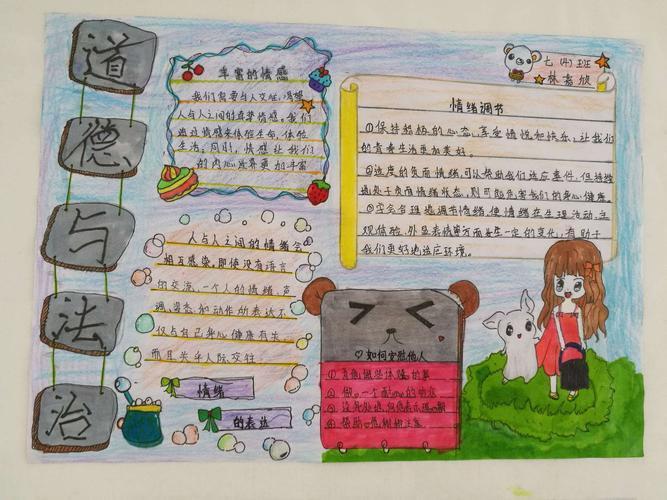 道
德
与
法
治
丰富的情感
我们需要与人交往,渴望
人与人之间的真挚情感。我们
通过情感来体验生命,体验
生活。同时,情感让我们
的内心世界更加丰富
七(4)班
林嘉欣
情绪调节
①保持积极的心态,享受愉悦和快乐,让我们
的青春生活更加美好。
②适度的负面情绪,可以帮助我们适应突发事件,但持续
地处于负面情绪状态,则可能危害我们的身心健康。
③学会合理地调节情绪,使情绪在生理活动、主
观体验、外显表情等方面发生一定的变化,有助于
我们更好地适应环境。
人与人之间的情绪会
相互感染,即使没有语言
的交流,一个人的情绪,声
调、姿态、和动作的表达不
仅与自己身心健康有关
而且关乎人际交往
情绪
的表达
如何安慰他人
①
②做一个
③
④帮助